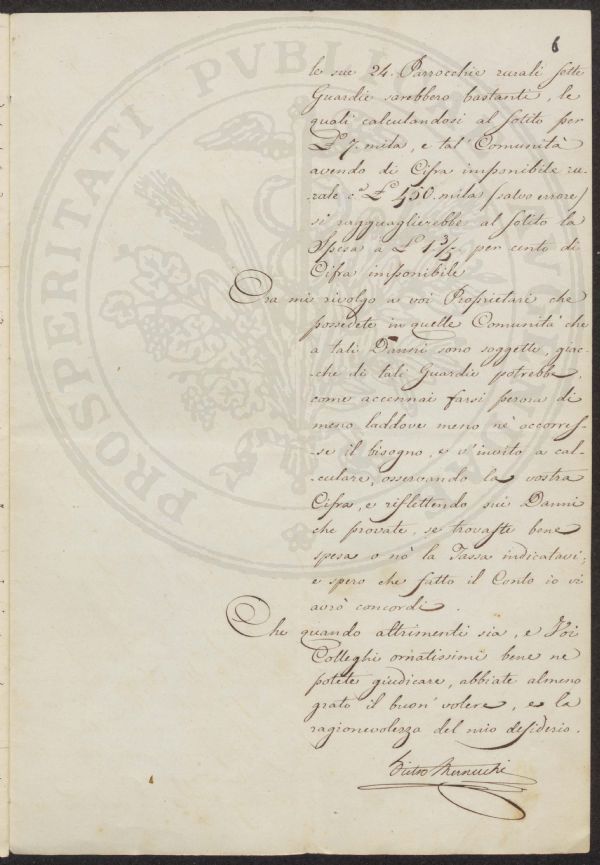 6
le sue 24. Parrocchie rurali sette
Guardie sarebbero bastanti, le
quali calculandosi al solito per
L.e 7. mila, e tal' Comunità
avendo di Cifra imponibile ru-
-rale c.a L.e 450. mila /salvo errore/
si ragguaglierebbe al solito la
Spesa a L.e 1 3/5 per cento di
Cifra imponibile
Ora mi rivolgo a voi Proprietari che
possedete in quelle Comunità che
a tali Danni sono soggette, giac-
-che di tali Guardie potrebbe,
come accennai farsi perora di
meno laddove meno nè accores-
-se il bisogno, e v'invito a cal-
-culare, osservando la vostra
Cifra, e riflettendo sui Danni
che provate, se trovaste bene
spesa o nò la Tassa indicatavi;
e spero che fatto il Conto io vi
avrò concordi.
Che quando altrimenti sia, e Voi
Colleghi ornatissimi bene ne
potete giudicare, abbiate almeno
grato il buon' volere, e la
ragionevolezza del mio desiderio.
Pietro
PROSPERITATI PVBLI